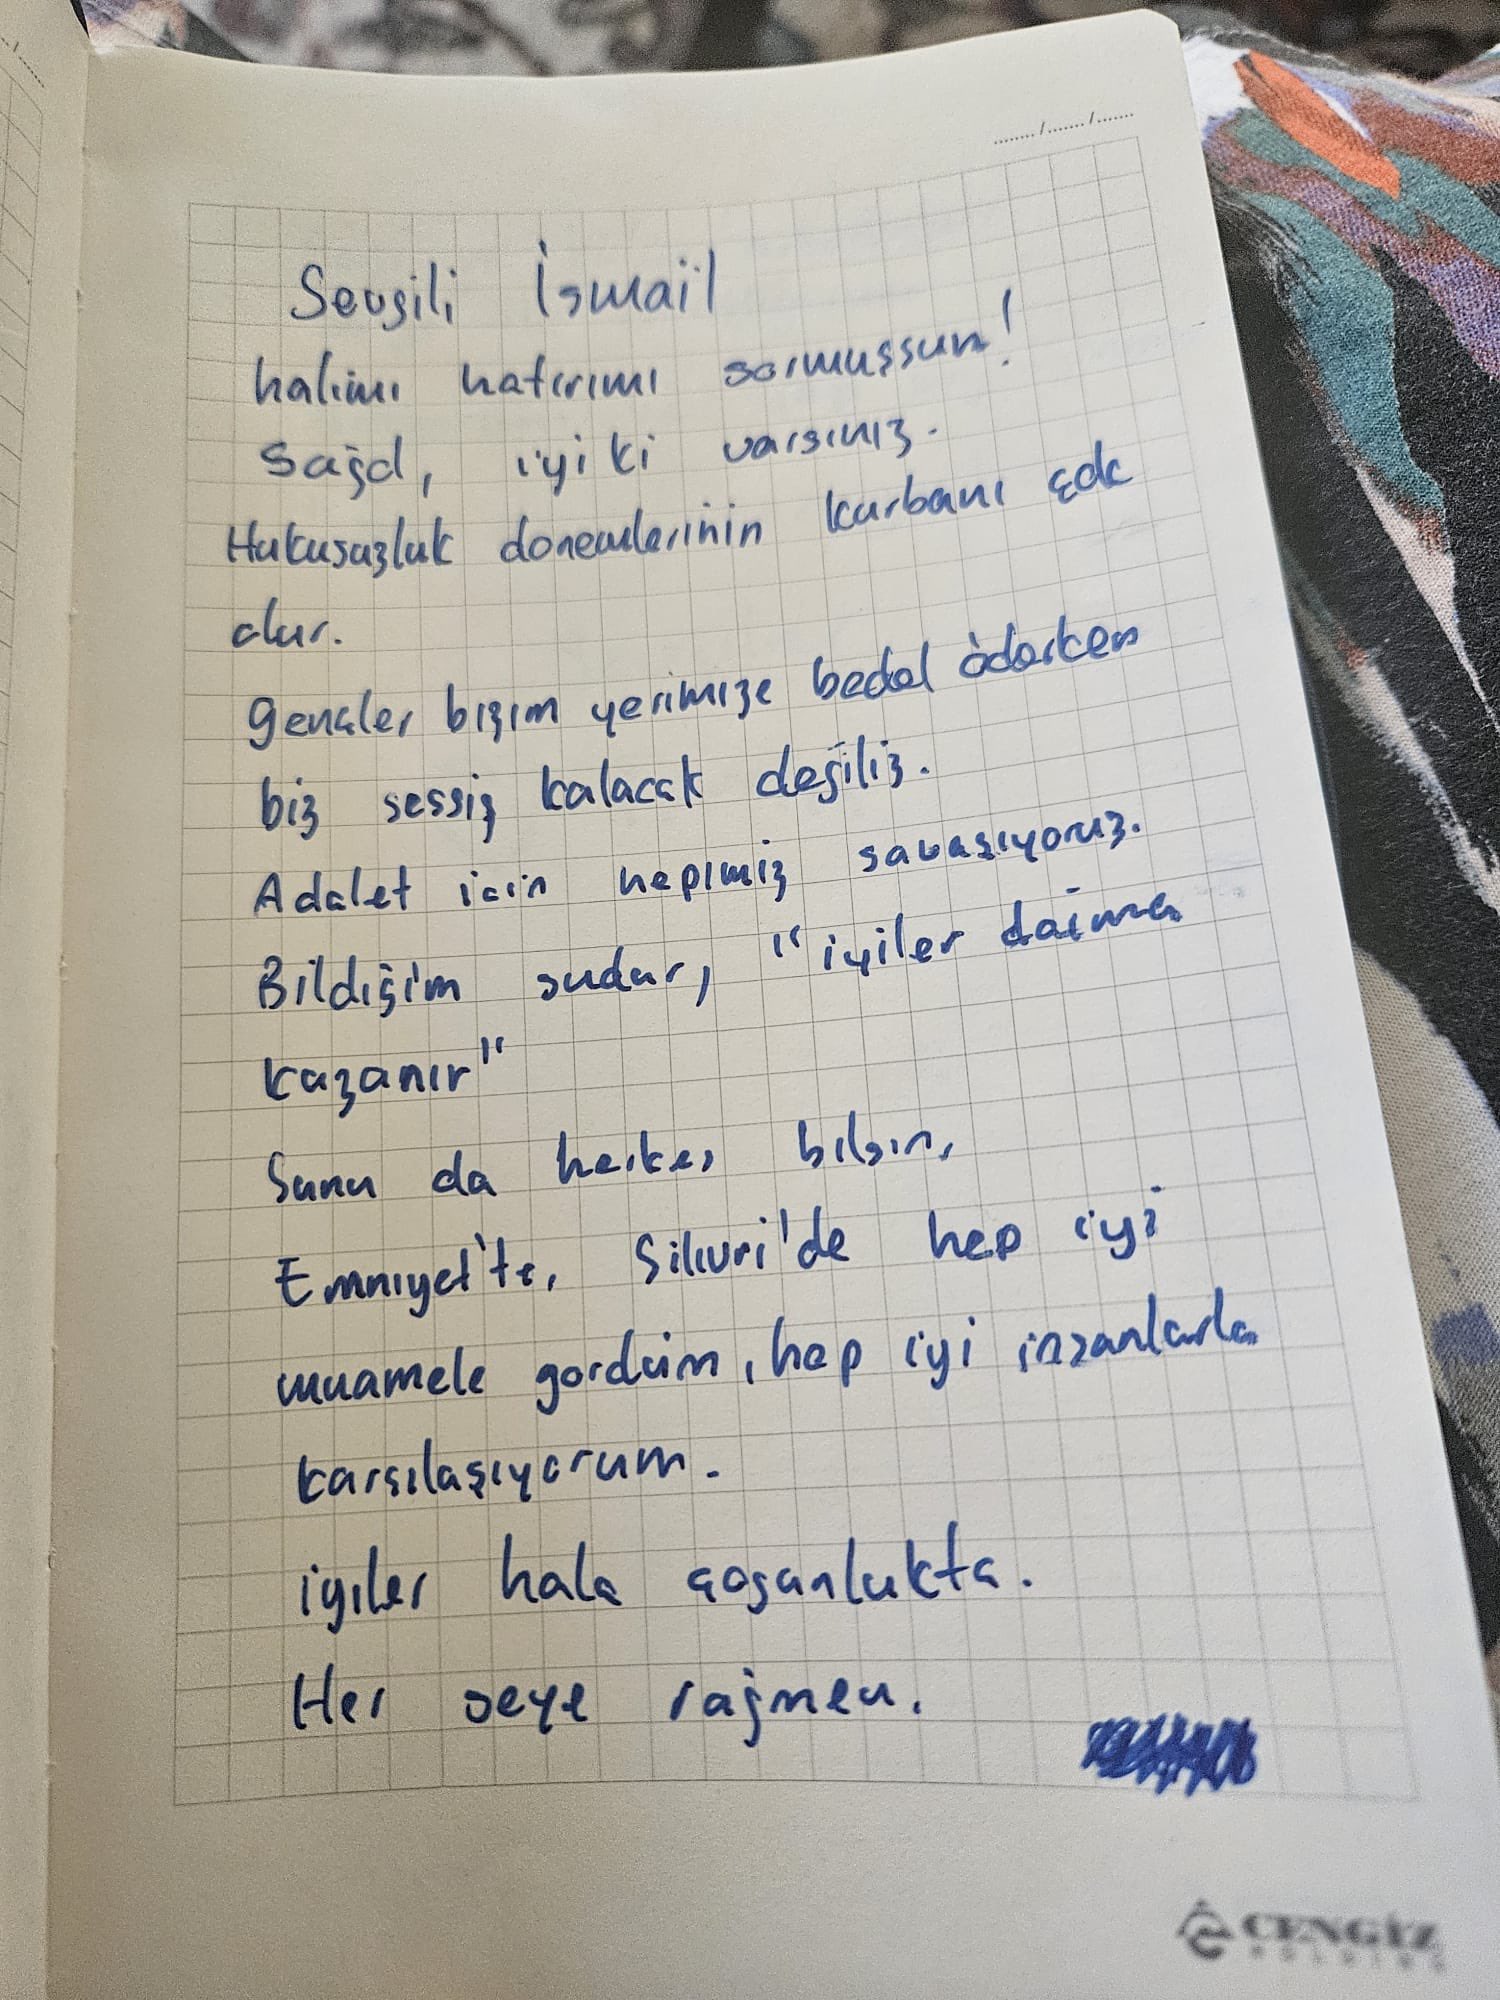 Sevgili İsmail
halimi hatırımı sormuşsun!
Sağol, iyi ki varsınız.
Hukusuzluk donemlerinin kurbanı çok
olur.
Gençler bizim yerimize bedel öderken
biz sessiz kalacak değiliz.
Adalet icin hepimiz savaşıyoruz.
Bildiğim sudur, "iyiler daima
kazanır"
Sunu da herkes bilsin,
Emniyet'te, Silivri'de hep iyi
muamele gordüm, hep iyi insanlarla
karsılaşıyorum.
iyiler hala çoğunlukta.
Her seye rağmen.
CENGİZ
HOLDİNG